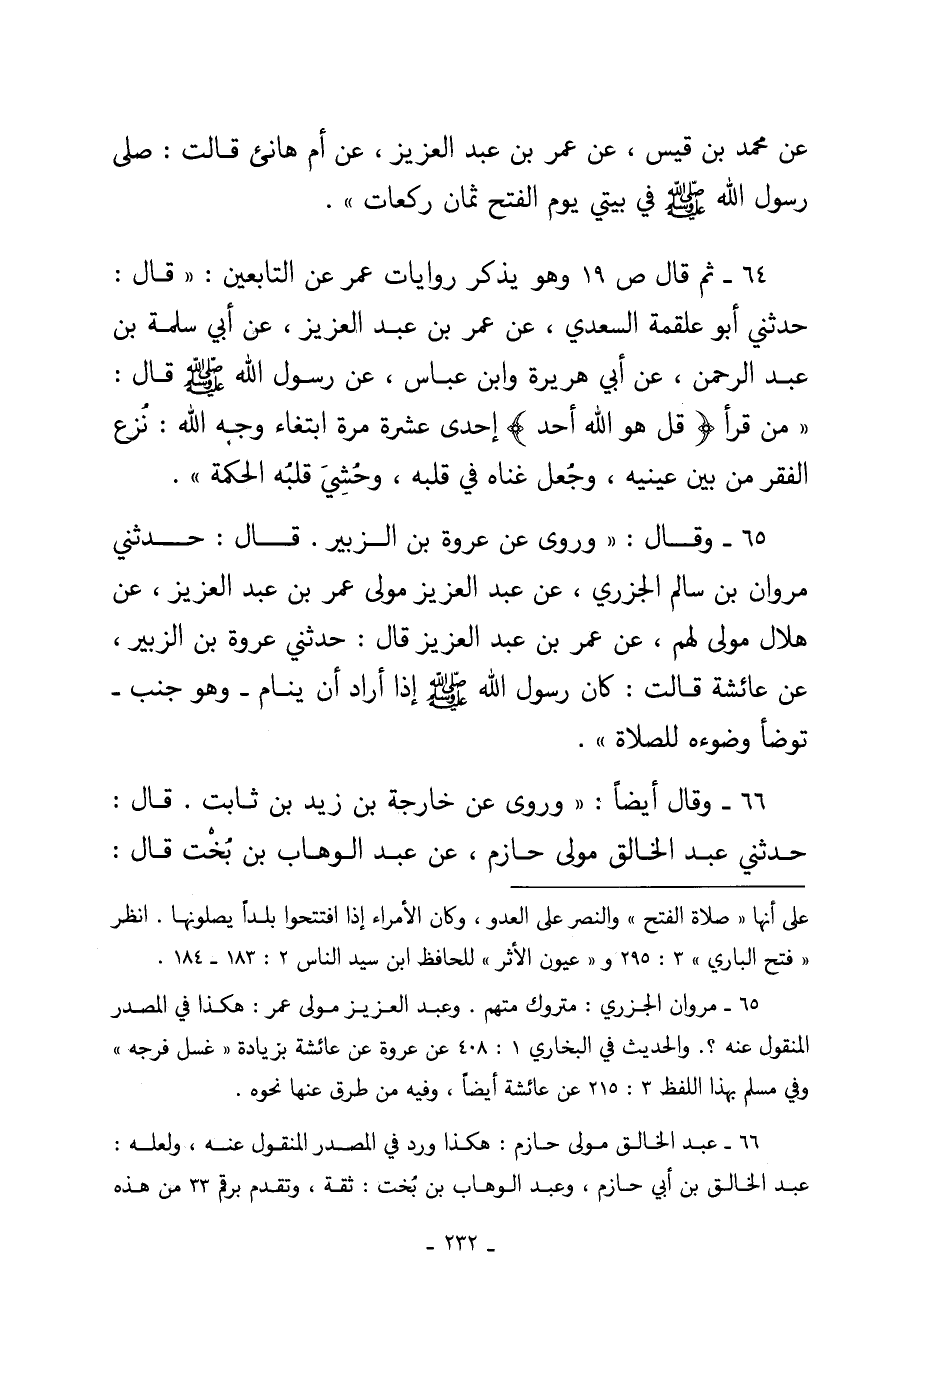 عن محمد بن قيس ، عن عمر بن عبد العزيز ، عن أم هانئ قالت : صلى
رسول الله ﷺ في بيتي يوم الفتح ثمان ركعات » .
٦٤ ـ ثم قال ص ١٩ وهو يذكر روايات عمر عن التابعين : « قال :
حدثني أبو علقمة السعدي ، عن عمر بن عبد العزيز ، عن أبي سلمة بن
عبد الرحمن ، عن أبي هريرة وابن عباس ، عن رسول الله ﷺ قال :
« من قرأ ﴿ قل هو الله أحد ﴾ إحدى عشرة مرة ابتغاء وجه الله : نُزع
الفقر من بين عينيه ، وجُعل غناه في قلبه ، وحُشِيَ قلبُه الحكمة » .
٦٥ ـ وقال : « وروى عن عروة بن الزبير . قال : حدثني
مروان بن سالم الجزري ، عن عبد العزيز مولى عمر بن عبد العزيز ، عن
هلال مولى لهم ، عن عمر بن عبد العزيز قال : حدثني عروة بن الزبير ،
عن عائشة قالت : كان رسول الله ﷺ إذا أراد أن ينام ـ وهو جنب ـ
توضأ وضوءه للصلاة » .
٦٦ ـ وقال أيضاً : « وروى عن خارجة بن زيد بن ثابت . قال :
حدثني عبد الخالق مولى حازم ، عن عبد الوهاب بن بُخْت قال :
على أنها « صلاة الفتح » والنصر على العدو ، وكان الأمراء إذا افتتحوا بلداً يصلونها . انظر
« فتح الباري » ٣ : ٢٩٥ و « عيون الأثر » للحافظ ابن سيد الناس ٢ : ١٨٣ ـ ١٨٤ .
٦٥ ـ مروان الجزري : متروك متهم . وعبد العزيز مولى عمر : هكذا في المصدر
المنقول عنه ؟. والحديث في البخاري ١ : ٤٠٨ عن عروة عن عائشة بزيادة « غسل فرجه »
وفي مسلم بهذا اللفظ ٣ : ٢١٥ عن عائشة أيضاً ، وفيه من طرق عنها نحوه .
٦٦ ـ عبد الخالق مولى حازم : هكذا ورد في المصدر المنقول عنه ، ولعله :
عبد الخالق بن أبي حازم ، وعبد الوهاب بن بُخت : ثقة ، وتقدم برقم ٣٣ من هذه
ـ ٢٣٢ ـ